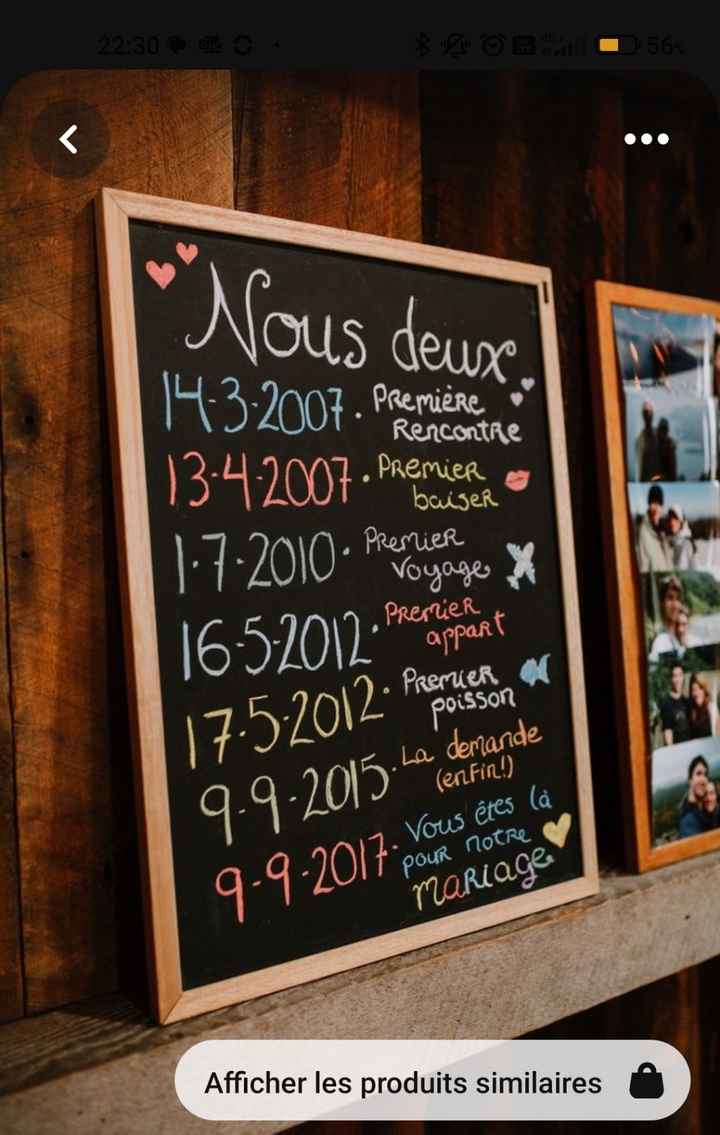 22:30
56%
Nous deux
14-3-2007. Première
Rencontre
13-4-2007. Premier
baiser
1-7-2010. Premier
Voyage
16-5-2012. Premier
appart
17-5-2012. Premier
poisson
9-9-2015. La demande
(enfin!)
9-9-2017. Vous êtes là
pour notre
mariage
Afficher les produits similaires